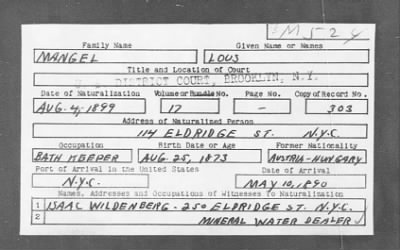 M524
Family Name Given Name or Names
MANGEL LOUS
Title and Location of Court
U.S. DISTRICT COURT, BROOKLYN, N.Y.
Date of Naturalization Volume or Bundle No. Page No. Copy of Record No.
AUG. 4, 1899 17 - 303
Address of Naturalized Person
114 ELDRIDGE ST. N.Y.C.
Occupation Birth Date or Age Former Nationality
BATH KEEPER AUG. 25, 1873 AUSTRIA-HUNGARY
Port of Arrival in the United States Date of Arrival
N.Y.C. MAY 10, 1890
Names, Addresses and Occupations of Witnesses To Naturalization
1 ISAAC WILDENBERG - 250 ELDRIDGE ST. N.Y.C.
2 MINERAL WATER DEALER